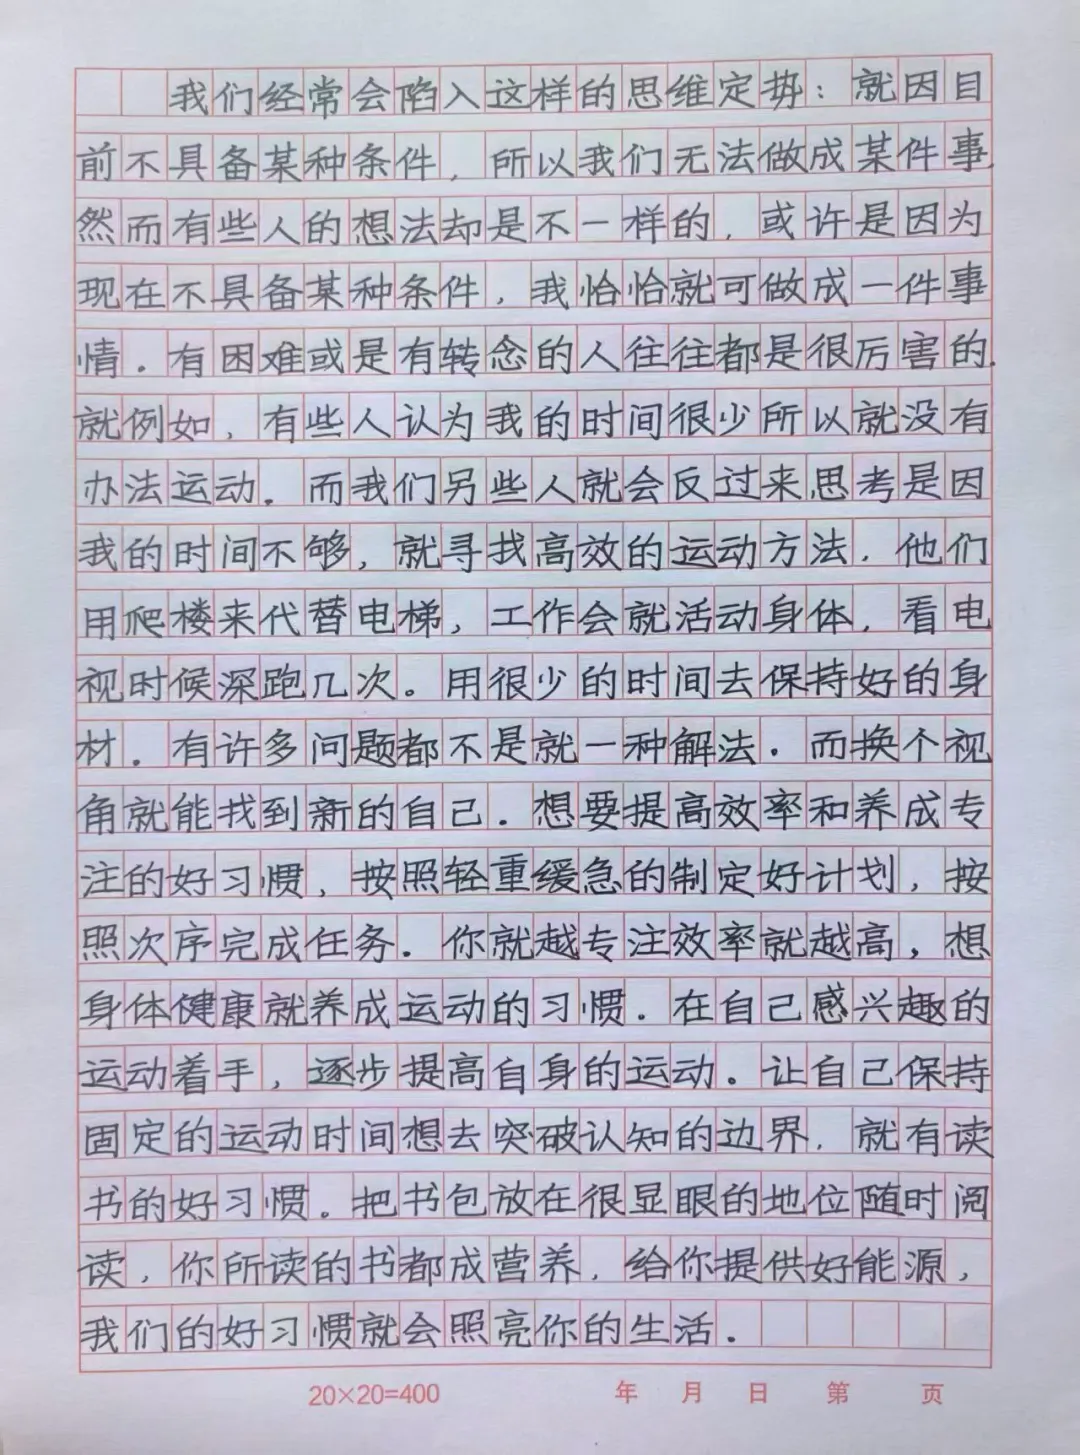 我们经常会陷入这样的思维定势：就因目
前不具备某种条件，所以我们无法做成某件事
然而有些人的想法却是不一样的，或许是因为
现在不具备某种条件，我恰恰就可做成一件事
情．有困难或是有转念的人往往都是很厉害的．
就例如，有些人认为我的时间很少所以就没有
办法运动．而我们另些人就会反过来思考是因
我的时间不够，就寻找高效的运动方法．他们
用爬楼来代替电梯，工作会就活动身体，看电
视时候深跑几次。用很少的时间去保持好的身
材．有许多问题都不是就一种解法．而换个视
角就能找到新的自己．想要提高效率和养成专
注的好习惯，按照轻重缓急的制定好计划，按
照次序完成任务．你就越专注效率就越高，想
身体健康就养成运动的习惯．在自己感兴趣的
运动着手，逐步提高自身的运动。让自己保持
固定的运动时间想去突破认知的边界，就有读
书的好习惯。把书包放在很显眼的地位随时阅
读，你所读的书都成营养，给你提供好能源，
我们的好习惯就会照亮你的生活．
20×20=400 年 月 日 第 页